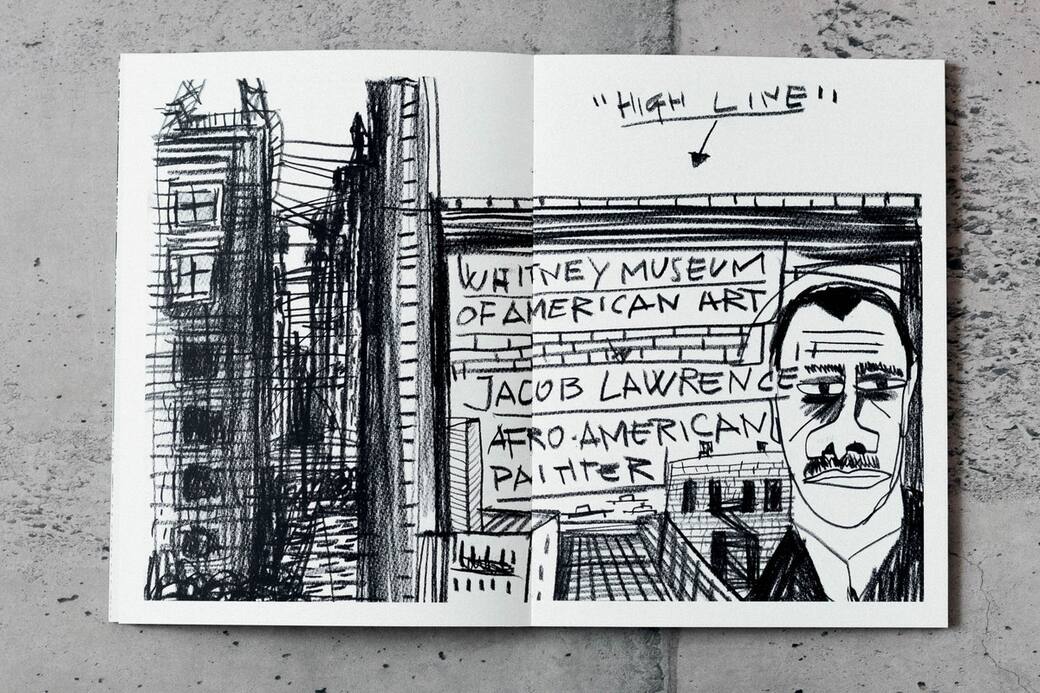 "HIGH LINE"
WHITNEY MUSEUM
OF AMERICAN ART
"JACOB LAWRENCE
AFRO-AMERICAN
PAITITER